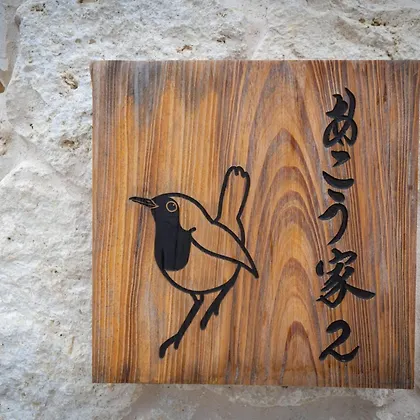 あこう家2